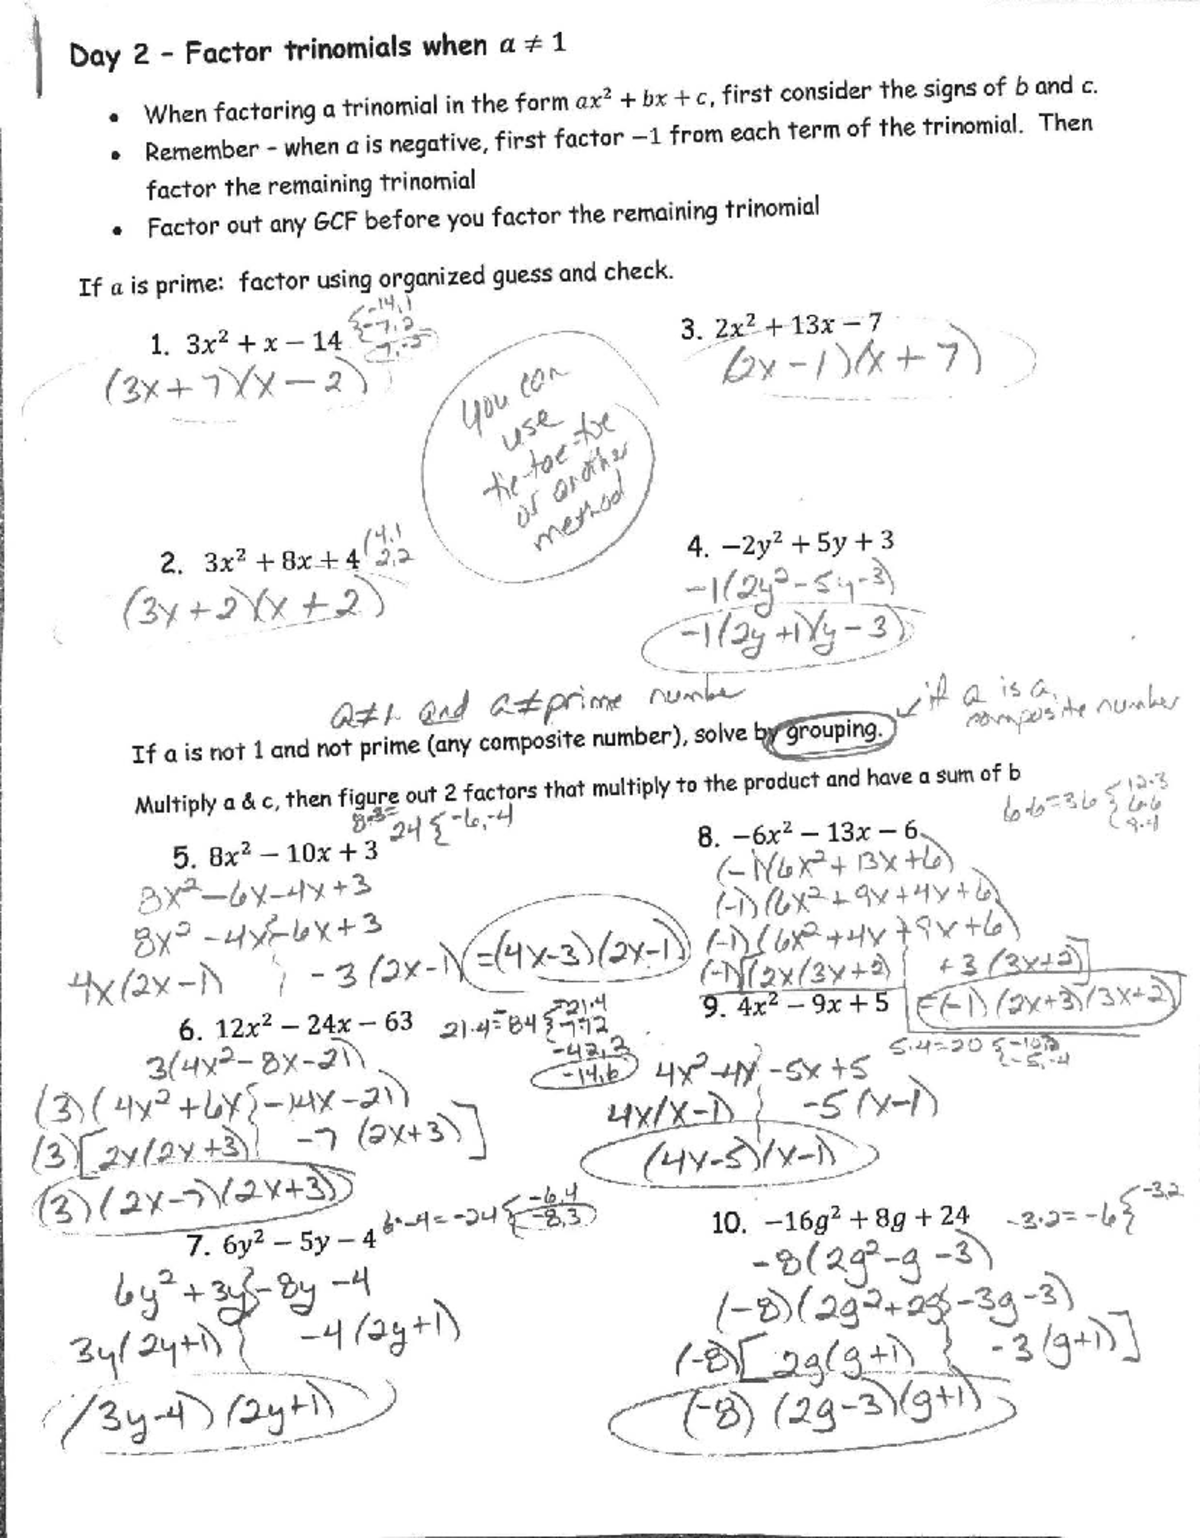 Day 2 - Factor trinomials when a ≠ 1
• When factoring a trinomial in the form ax² + bx + c, first consider the signs of b and c.
• Remember - when a is negative, first factor −1 from each term of the trinomial. Then
factor the remaining trinomial
• Factor out any GCF before you factor the remaining trinomial
If a is prime: factor using organized guess and check.
1. 3x² + x − 14
-14,1
-7,2
7,-2
(3x+7)(x-2)
you can
use
tic-tac-toe
or another
method
3. 2x² + 13x − 7
(2x-1)(x+7)
2. 3x² + 8x + 4
4,1
2,2
(3x+2)(x+2)
4. −2y² + 5y + 3
-1(2y²-5y-3)
-1(2y+1)(y-3)
a≠1 and a≠prime number
if a is a
composite number
If a is not 1 and not prime (any composite number), solve by grouping.
Multiply a & c, then figure out 2 factors that multiply to the product and have a sum of b
5. 8x² − 10x + 3
8·3=
24 { -6,-4
8x²-6x-4x+3
8x²-4x-6x+3
4x(2x-1) -3(2x-1) =(4x-3)(2x-1)
8. −6x² − 13x − 6
6·6=36 { 12·3
6·6
9·4
(-1)(6x²+13x+6)
(-1)(6x²+9x+4x+6)
(-1)(6x²+4x+9x+6)
(-1)[2x(3x+2) +3(3x+2)]
=(-1)(2x+3)(3x+2)
6. 12x² − 24x − 63
21·4=84 { -21·4
-7·12
-42,2
-14,6
3(4x²-8x-21)
(3)(4x²+6x-14x-21)
(3)[2x(2x+3) -7(2x+3)]
(3)(2x-7)(2x+3)
9. 4x² − 9x + 5
5·4=20 { -10,2
-5,-4
4x²-4x-5x+5
4x(x-1) -5(x-1)
(4x-5)(x-1)
7. 6y² − 5y − 4
6·-4=-24 { -6,4
-8,3
6y²+3y-8y-4
3y(2y+1) -4(2y+1)
(3y-4)(2y+1)
10. −16g² + 8g + 24
-3·2=-6 { -3,2
-8(2g²-g-3)
(-8)(2g²+2g-3g-3)
(-8)[2g(g+1) -3(g+1)]
(-8)(2g-3)(g+1)